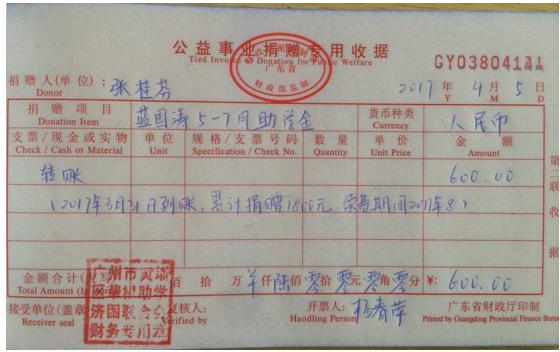 公益事业捐赠专用收据
Tied Invoice of Donation for Public Welfare
广东省
财政部监制
GY03804131
捐赠人(单位): 张桂芬
Donor
2017 年 4 月 5 日
Y M D
捐赠项目 蓝国涛5-7月助学金 货币种类 人民币
Donation Item Currency
支票/现金或实物 单位 规格/支票号码 数量 单价 金额
Check / Cash or Material Unit Specification / Check No. Quantity Unit Price Amount
转账 600.00
(2017年3月31日到账,累计捐赠1800元,
第二联 收据
金额合计(大写) 佰 拾 万 仟陆佰零拾零元零角零分 ¥: 600.00
Total Amount (In
广州市黄埔
助学
济困联合会
财务专用章
接受单位(盖章) 复核人: 开票人: 杨春萍 广东省财政厅印制
Receiver seal Verified by Handling Person Printed by Guangdong Provincial Finance Bureau